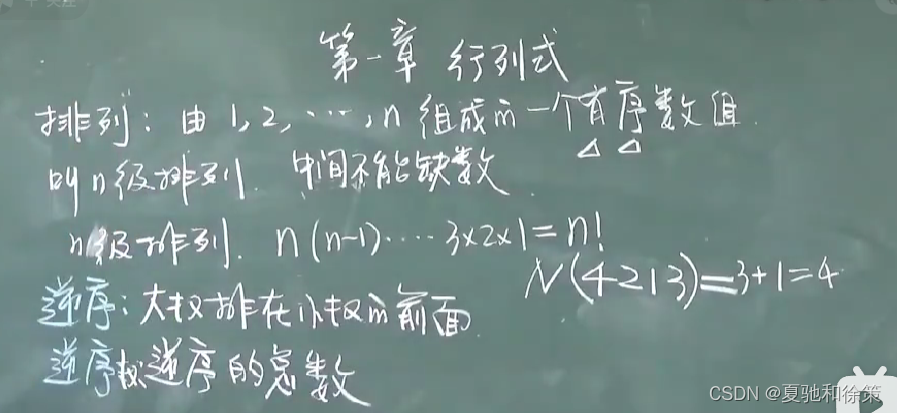 第一章 行列式
排列: 由1,2,…,n 组成的一个有序数组
叫n级排列. 中间不能缺数
n级排列. n(n-1)…3×2×1=n!
N(4213)=3+1=4
逆序: 大数排在小数的前面
逆序数逆序的总数
CSDN @夏驰和徐策